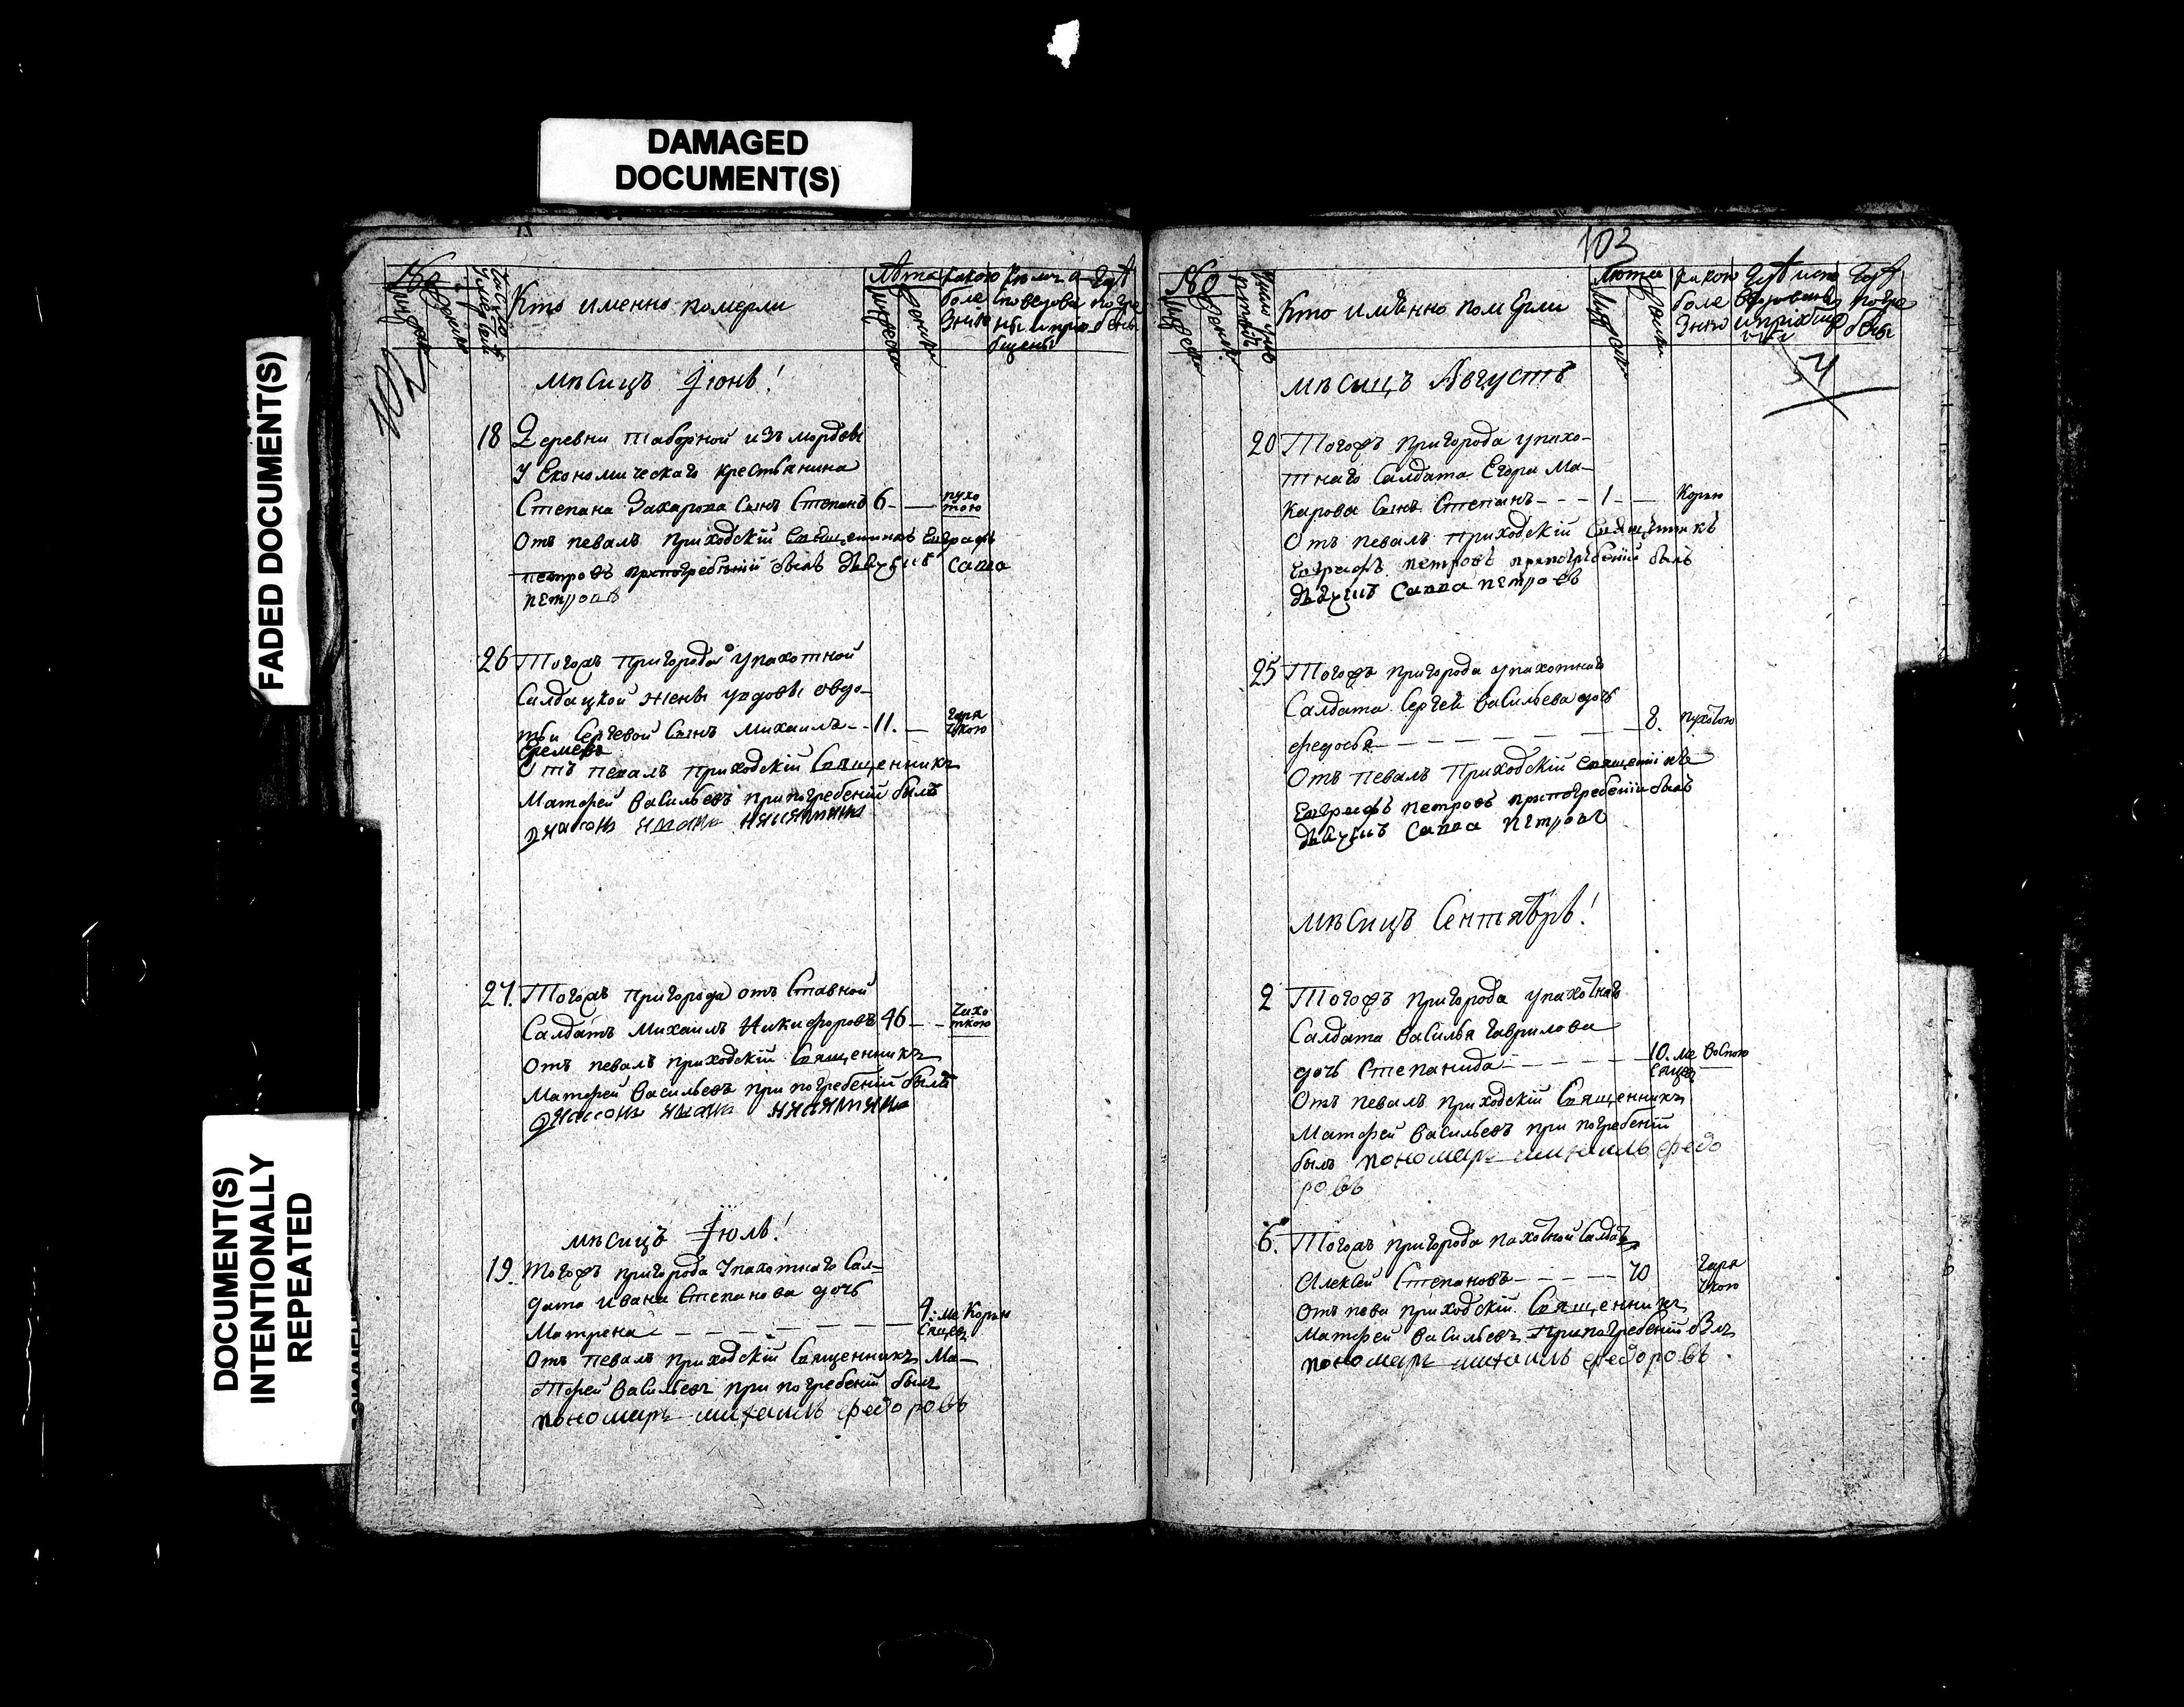 DAMAGED
DOCUMENT(S)
FADED DOCUMENT(S)
DOCUMENT(S)
INTENTIONALLY
REPEATED
Кто именно померли
Лѣта
какою
боле
знию
мѣсицъ Июнь!
18 Деревни Таборной изъ мордвы
у Економическаго крестьянина
Степана Захарова сынъ Степанъ 6 - — пухо
тою
Отъ певалъ приходскiй священникъ Евграфъ
петровъ припогребенiй былъ дьячекъ Сапа
петровъ
26 Тогожъ пригорода упахотной
Салдацкой жены удовы овдо-
тьи Сергевой сынъ Михаилъ - 11. — гаря
чкою
Еремевъ
Отъ певалъ приходскiй Священникъ
Матфей васильевъ припогребенiй былъ
27. Тогожъ пригорода отъ Ставной
Салдатъ Михаилъ Никифоровъ 46 - - чихо
ткою
Отъ певалъ приходскiй Священникъ
Матфей васильевъ при погребенiй былъ
мѣсицъ Июль!
19. тогожъ пригорода Упахотнаго Сал-
дата Ивана Степанова дочь
Матрена — — — — — — 4: ме Корью
сицев
Отъ певалъ приходскiй Священникъ Ма-
тфей васильевъ при погребенiй былъ
пономарь михаилъ федоровъ
103
Кто имѣнно помѣрли
Лѣта
какою
боле
знию
мѣсицъ Августъ
20 Тогожъ пригорода упахо-
тнаго Салдата Егора Ма-
карова сынъ Степанъ - - - 1 - — Корью
Отъ певалъ приходскiй Священникъ
Евграфъ петровъ припогребенiй былъ
дьячекъ Сапа петровъ
25 Тогожъ пригорода упахотнаго
Салдата Сергей васильева дочь
федосья — — — — — — 8. пухотою
Отъ певалъ приходскiй священникъ
Евграфъ петровъ припогребенiй былъ
дьячекъ Сапа петровъ
мѣсицъ Сентябрь!
2 Тогожъ пригорода упахотнаго
Салдата василья гаврилова
дочь Степанида — — — — — 10. ме воспою
сицев
Отъ певалъ приходскiй Священникъ
Матфей васильевъ при погребенiй
былъ пономарь михаилъ федо
ровъ
6. Тогожъ пригорода пахотной Салдатъ
Алексей Степановъ — — — — 70 гаря
чкою
Отъ пева приходскiй Священникъ
Матфей васильевъ припогребенiй былъ
пономарь михаилъ федоровъ